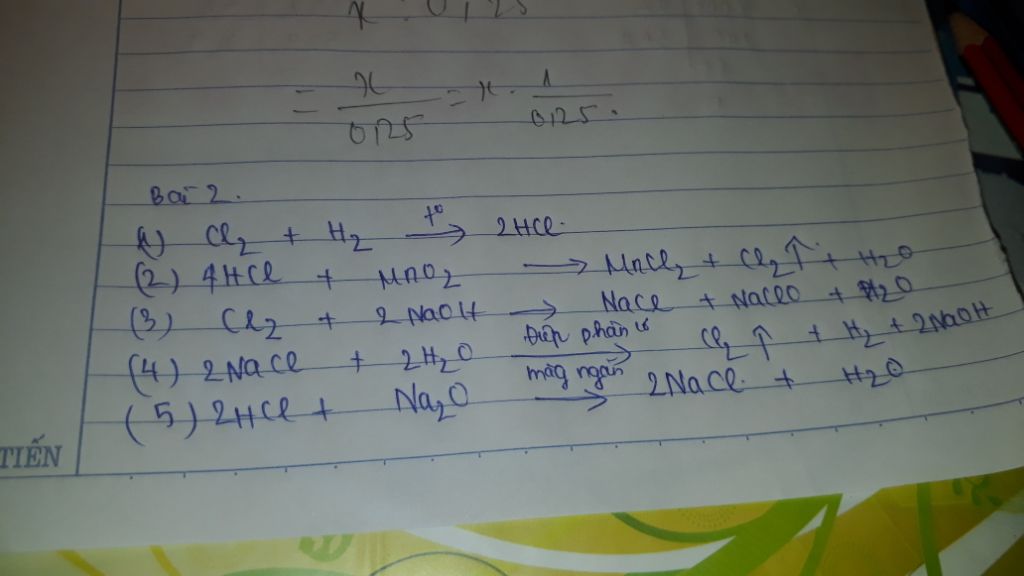 x : 0,125
= x / 0,125 = x . 1 / 0,125.
Bài 2.
(1) Cl2 + H2 t° → 2HCl.
(2) 4HCl + MnO2 → MnCl2 + Cl2↑ + H2O
(3) Cl2 + 2NaOH → NaCl + NaClO + H2O
(4) 2NaCl + 2H2O điện phân → màg ngăn Cl2↑ + H2 + 2NaOH
(5) 2HCl + Na2O → 2NaCl + H2O
TIẾN